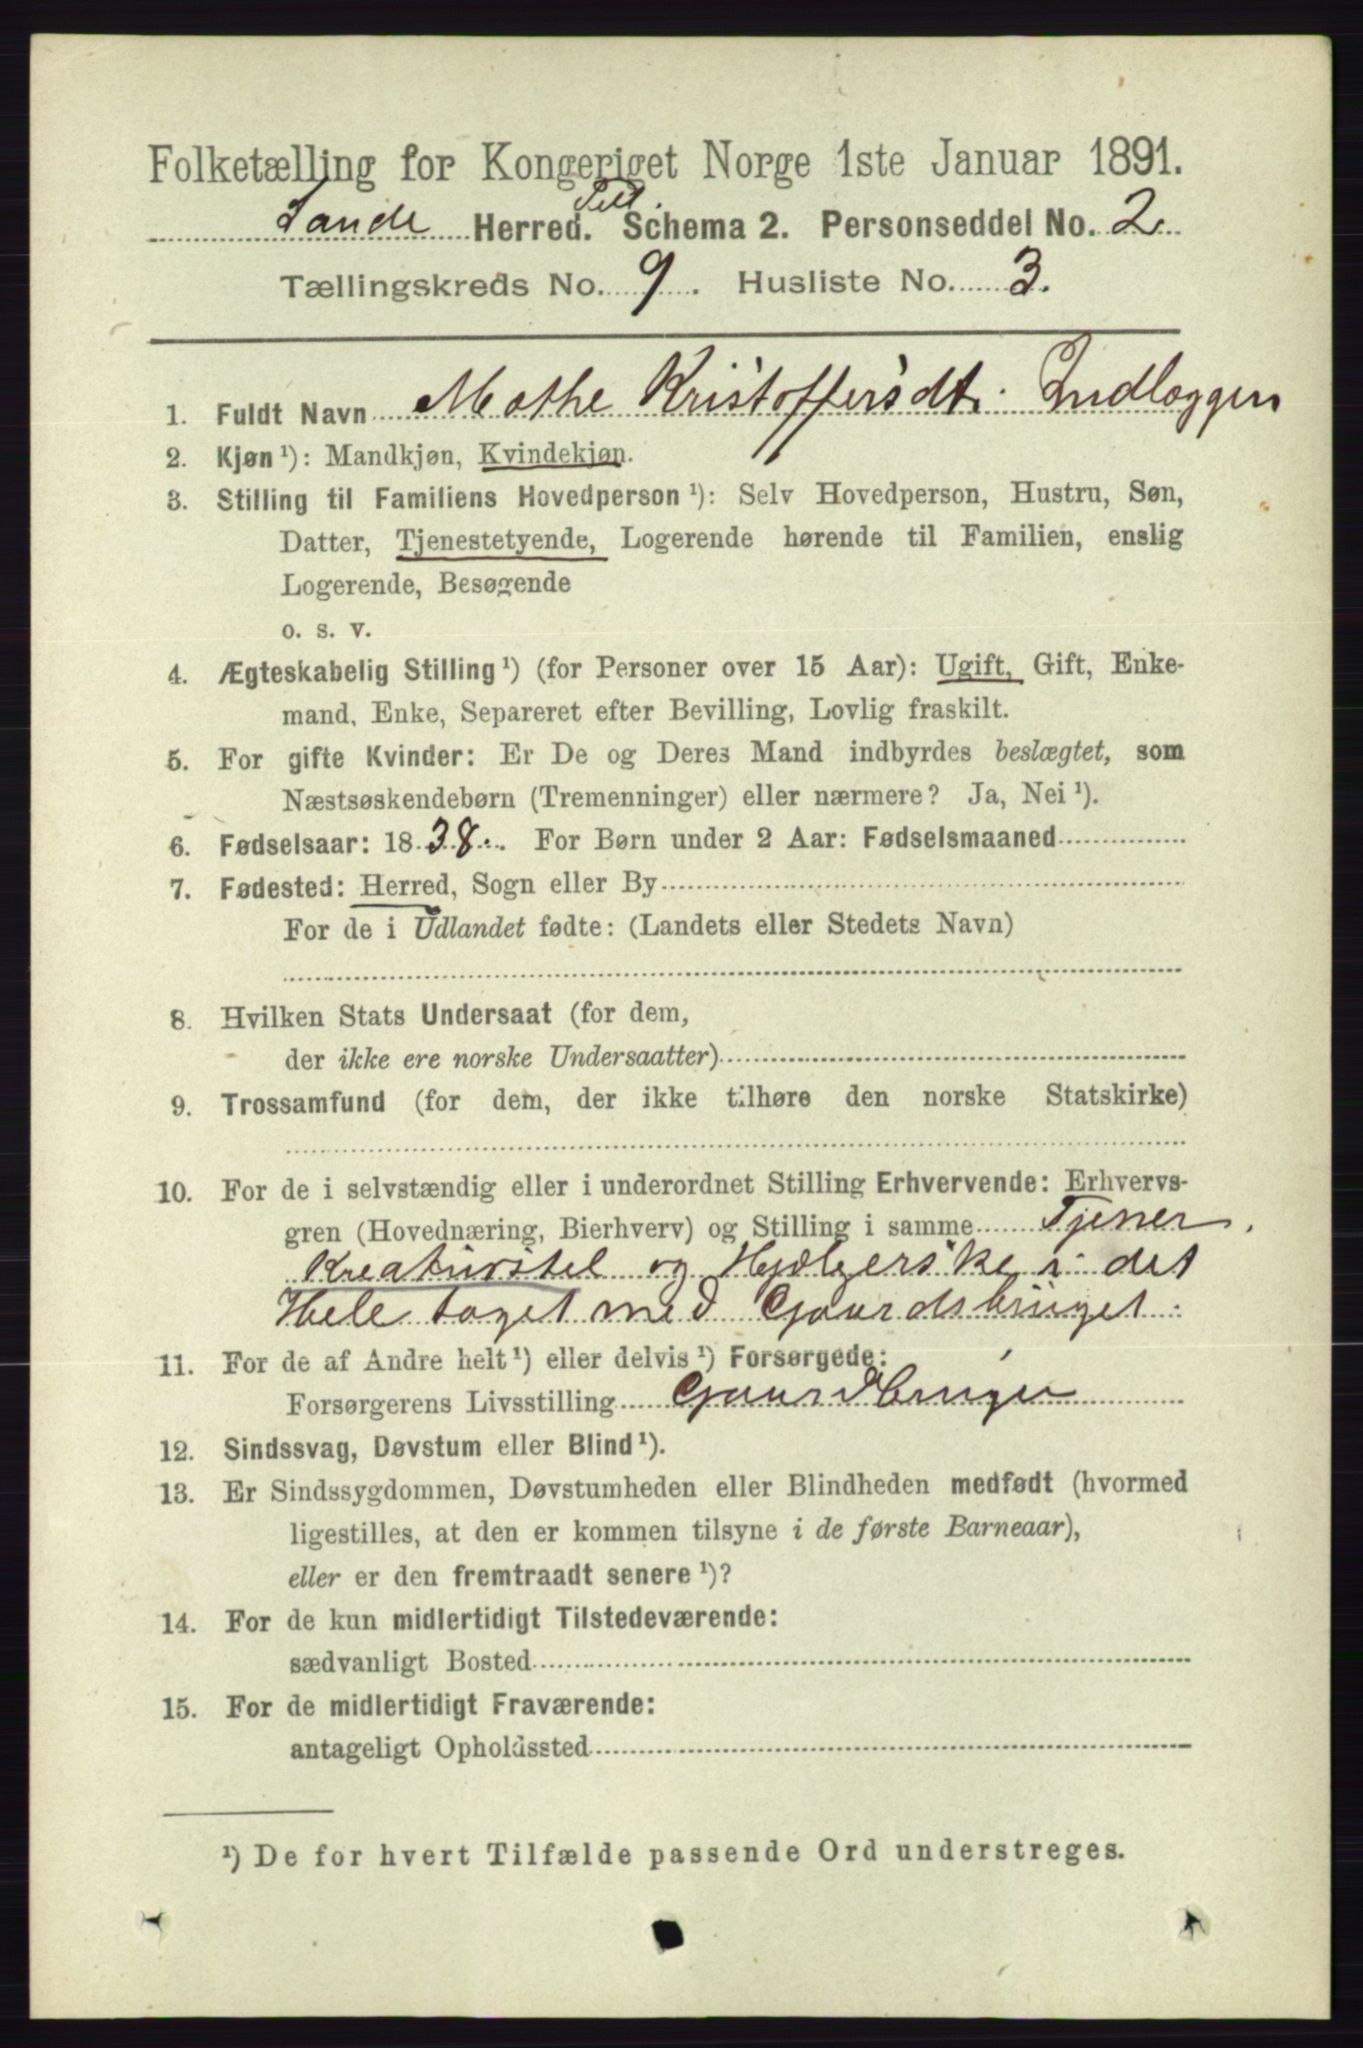 Folketælling for Kongeriget Norge 1ste Januar 1891.
Sande Herred. Schema 2. Personseddel No. 2.
Tællingskreds No. 9. Husliste No. 3.
1. Fuldt Navn Mathe Kristoffersdt. Indlæggen
2. Kjøn ¹): Mandkjøn, Kvindekjøn.
3. Stilling til Familiens Hovedperson ¹): Selv Hovedperson, Hustru, Søn,
Datter, Tjenestetyende, Logerende hørende til Familien, enslig
Logerende, Besøgende
o. s. v.
4. Ægteskabelig Stilling ¹) (for Personer over 15 Aar): Ugift, Gift, Enke-
mand, Enke, Separeret efter Bevilling, Lovlig fraskilt.
5. For gifte Kvinder: Er De og Deres Mand indbyrdes beslægtet, som
Næstsøskendebørn (Tremenninger) eller nærmere? Ja, Nei ¹).
6. Fødselsaar: 1838. For Børn under 2 Aar: Fødselsmaaned
7. Fødested: Herred, Sogn eller By
For de i Udlandet fødte: (Landets eller Stedets Navn)
8. Hvilken Stats Undersaat (for dem,
der ikke ere norske Undersaatter)
9. Trossamfund (for dem, der ikke tilhøre den norske Statskirke)
10. For de i selvstændig eller i underordnet Stilling Erhvervende: Erhvervs-
gren (Hovednæring, Bierhverv) og Stilling i samme Tjener.
Kreaturstel og Hjælperske i det
Hele taget med Gaardsbruget.
11. For de af Andre helt ¹) eller delvis ¹) Forsørgede:
Forsørgerens Livsstilling Gaardbruger
12. Sindssvag, Døvstum eller Blind ¹).
13. Er Sindssygdommen, Døvstumheden eller Blindheden medfødt (hvormed
ligestilles, at den er kommen tilsyne i de første Barneaar),
eller er den fremtraadt senere ¹)?
14. For de kun midlertidigt Tilstedeværende:
sædvanligt Bosted
15. For de midlertidigt Fraværende:
antageligt Opholdssted
¹) De for hvert Tilfælde passende Ord understreges.